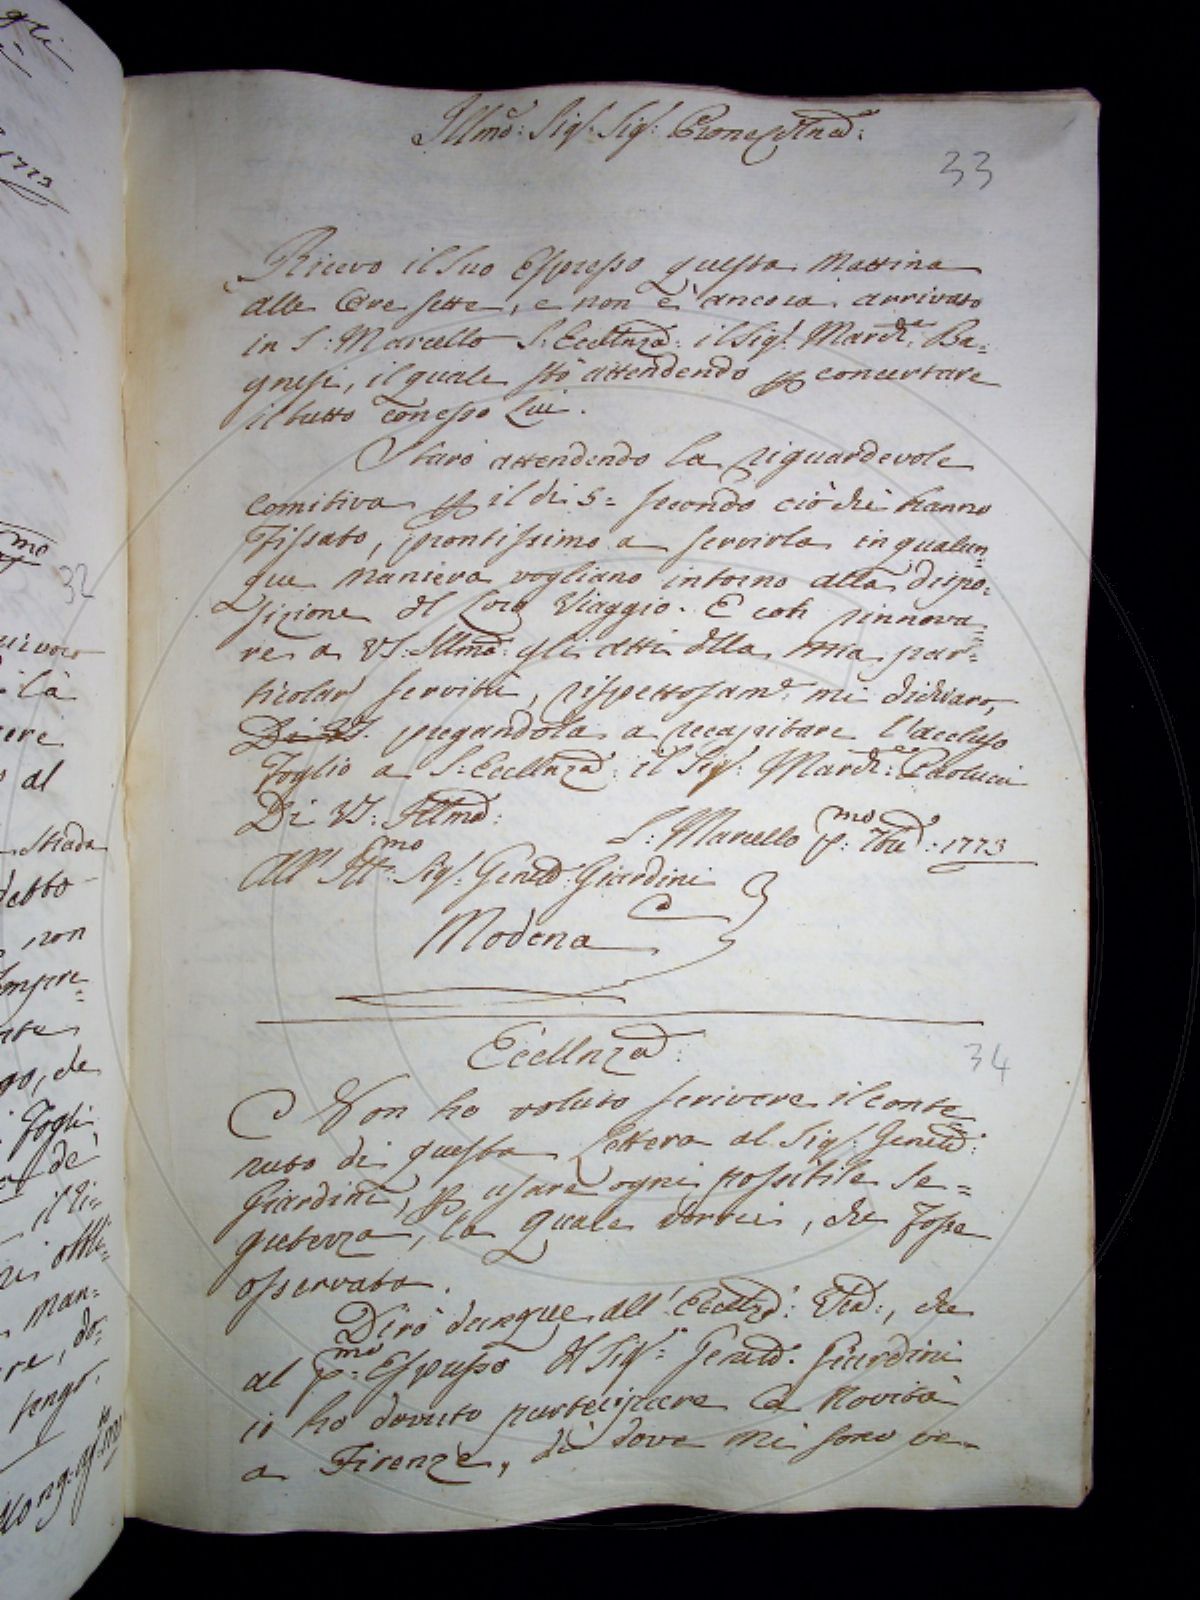 Illmo: Sig.r Sig.r Prone
33
Ricevo il Suo Espresso questa Mattina
alle Ore sette, e non è ancora arrivato
in S: Marcello S: Ecclnza: il Sig.r March.e Ba=
gnesi, il quale stò attendendo p concertare
il tutto con esso Lui.
Starò attendendo la riguardevole
comitiva p il dì 5= secondo ciò che hanno
Fissato, prontissimo a servirla in qualun=
que maniera vogliano intorno alla dispo=
sizione del Loro Viaggio. E coll rinnova=
re a VS: Illma: gli atti della mia par=
ticolar servitù, rispettosam.e mi dichiaro,
Di VS. pregandola a recapitare l'accluso
Foglio a S: Ecclnza: il Sig.r March.e Paolucci
Di VS: Illma:
S: Marcello p:mo 7bre: 1773
All' Ill:mo Sig.r Genele: Giardini
Modena
Ecclnza:
34
Non ho voluto scrivere il conte
nuto di questa Lettera al Sig.r Genele:
Giardini, p usare ogni possibile Se=
gretezza, la quale vorrei, che Fosse
osservata.
Dirò dunque all' Ecclnza: Vra:, che
al p:mo Espresso del Sig.r Genele: Giardini
io ho dovuto partecipare la Novità
a Firenze, di dove mi sono ve=
32
1773
strada
non
Fogli
il li=
man=
tengo.